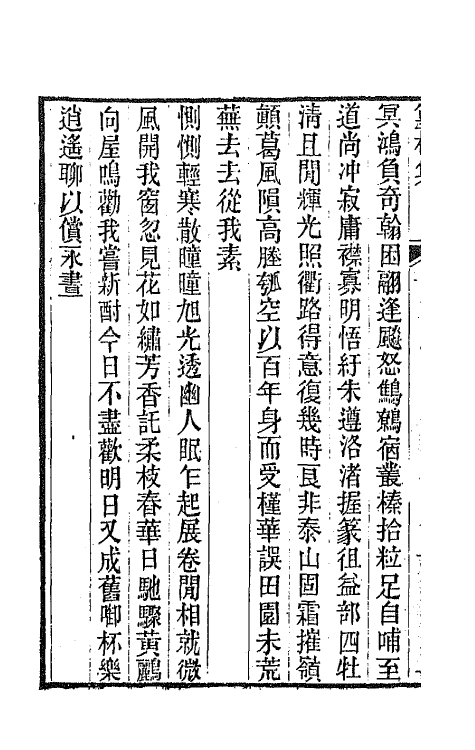 冥鴻負奇翰困翮逢颷怒鷦鷯宿叢榛拾粒足自哺至
道尚冲寂庸襟寡明悟紆朱遵洛渚握篆徂益部四牡
淸且閒輝光照衢路得意復幾時艮非泰山固霜摧嶺
顛葛風隕高塍瓠空以百年身而受槿華誤田園未荒
蕪去去從我素
惻惻輕寒散曈曈旭光透幽人眠乍起展卷閒相就微
風開我窗忽見花如繡芳香託柔枝春華日馳驟黃鸝
向屋鳴勸我嘗新酎今日不盡歡明日又成舊啣杯樂
逍遙聊以償永晝